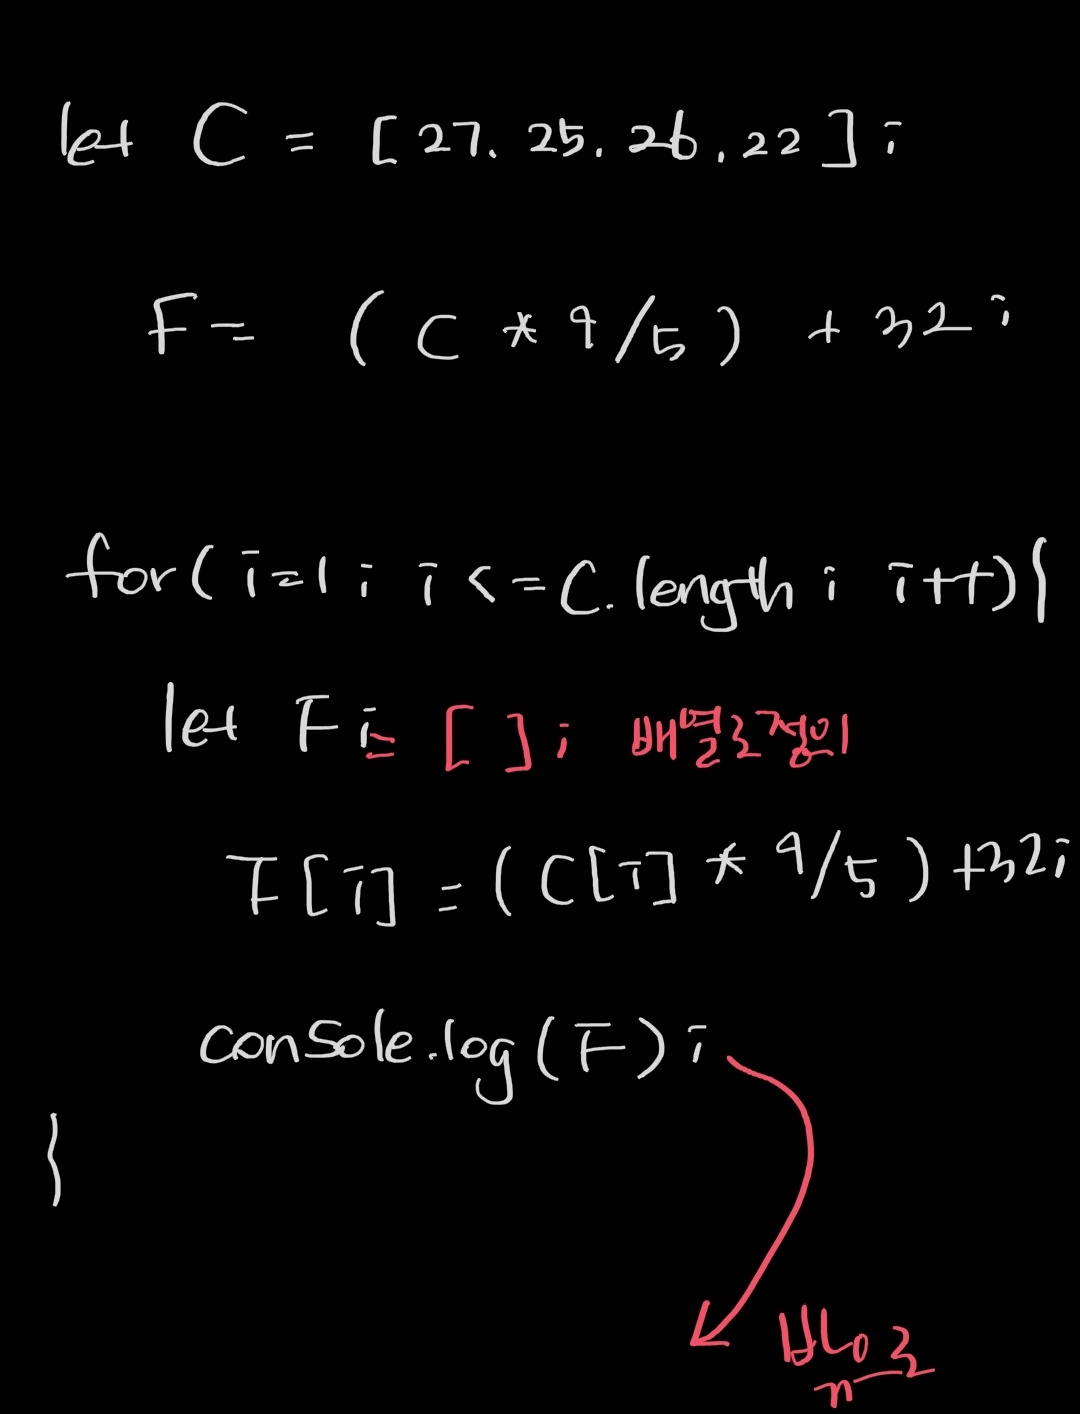 let C = [27. 25. 26. 22];
F = (C * 9/5) + 32;
for(i=1; i<=C.length; i++){
let F;= []; 배열로정의
F[i] = (C[i] * 9/5) +32;
console.log(F);
}